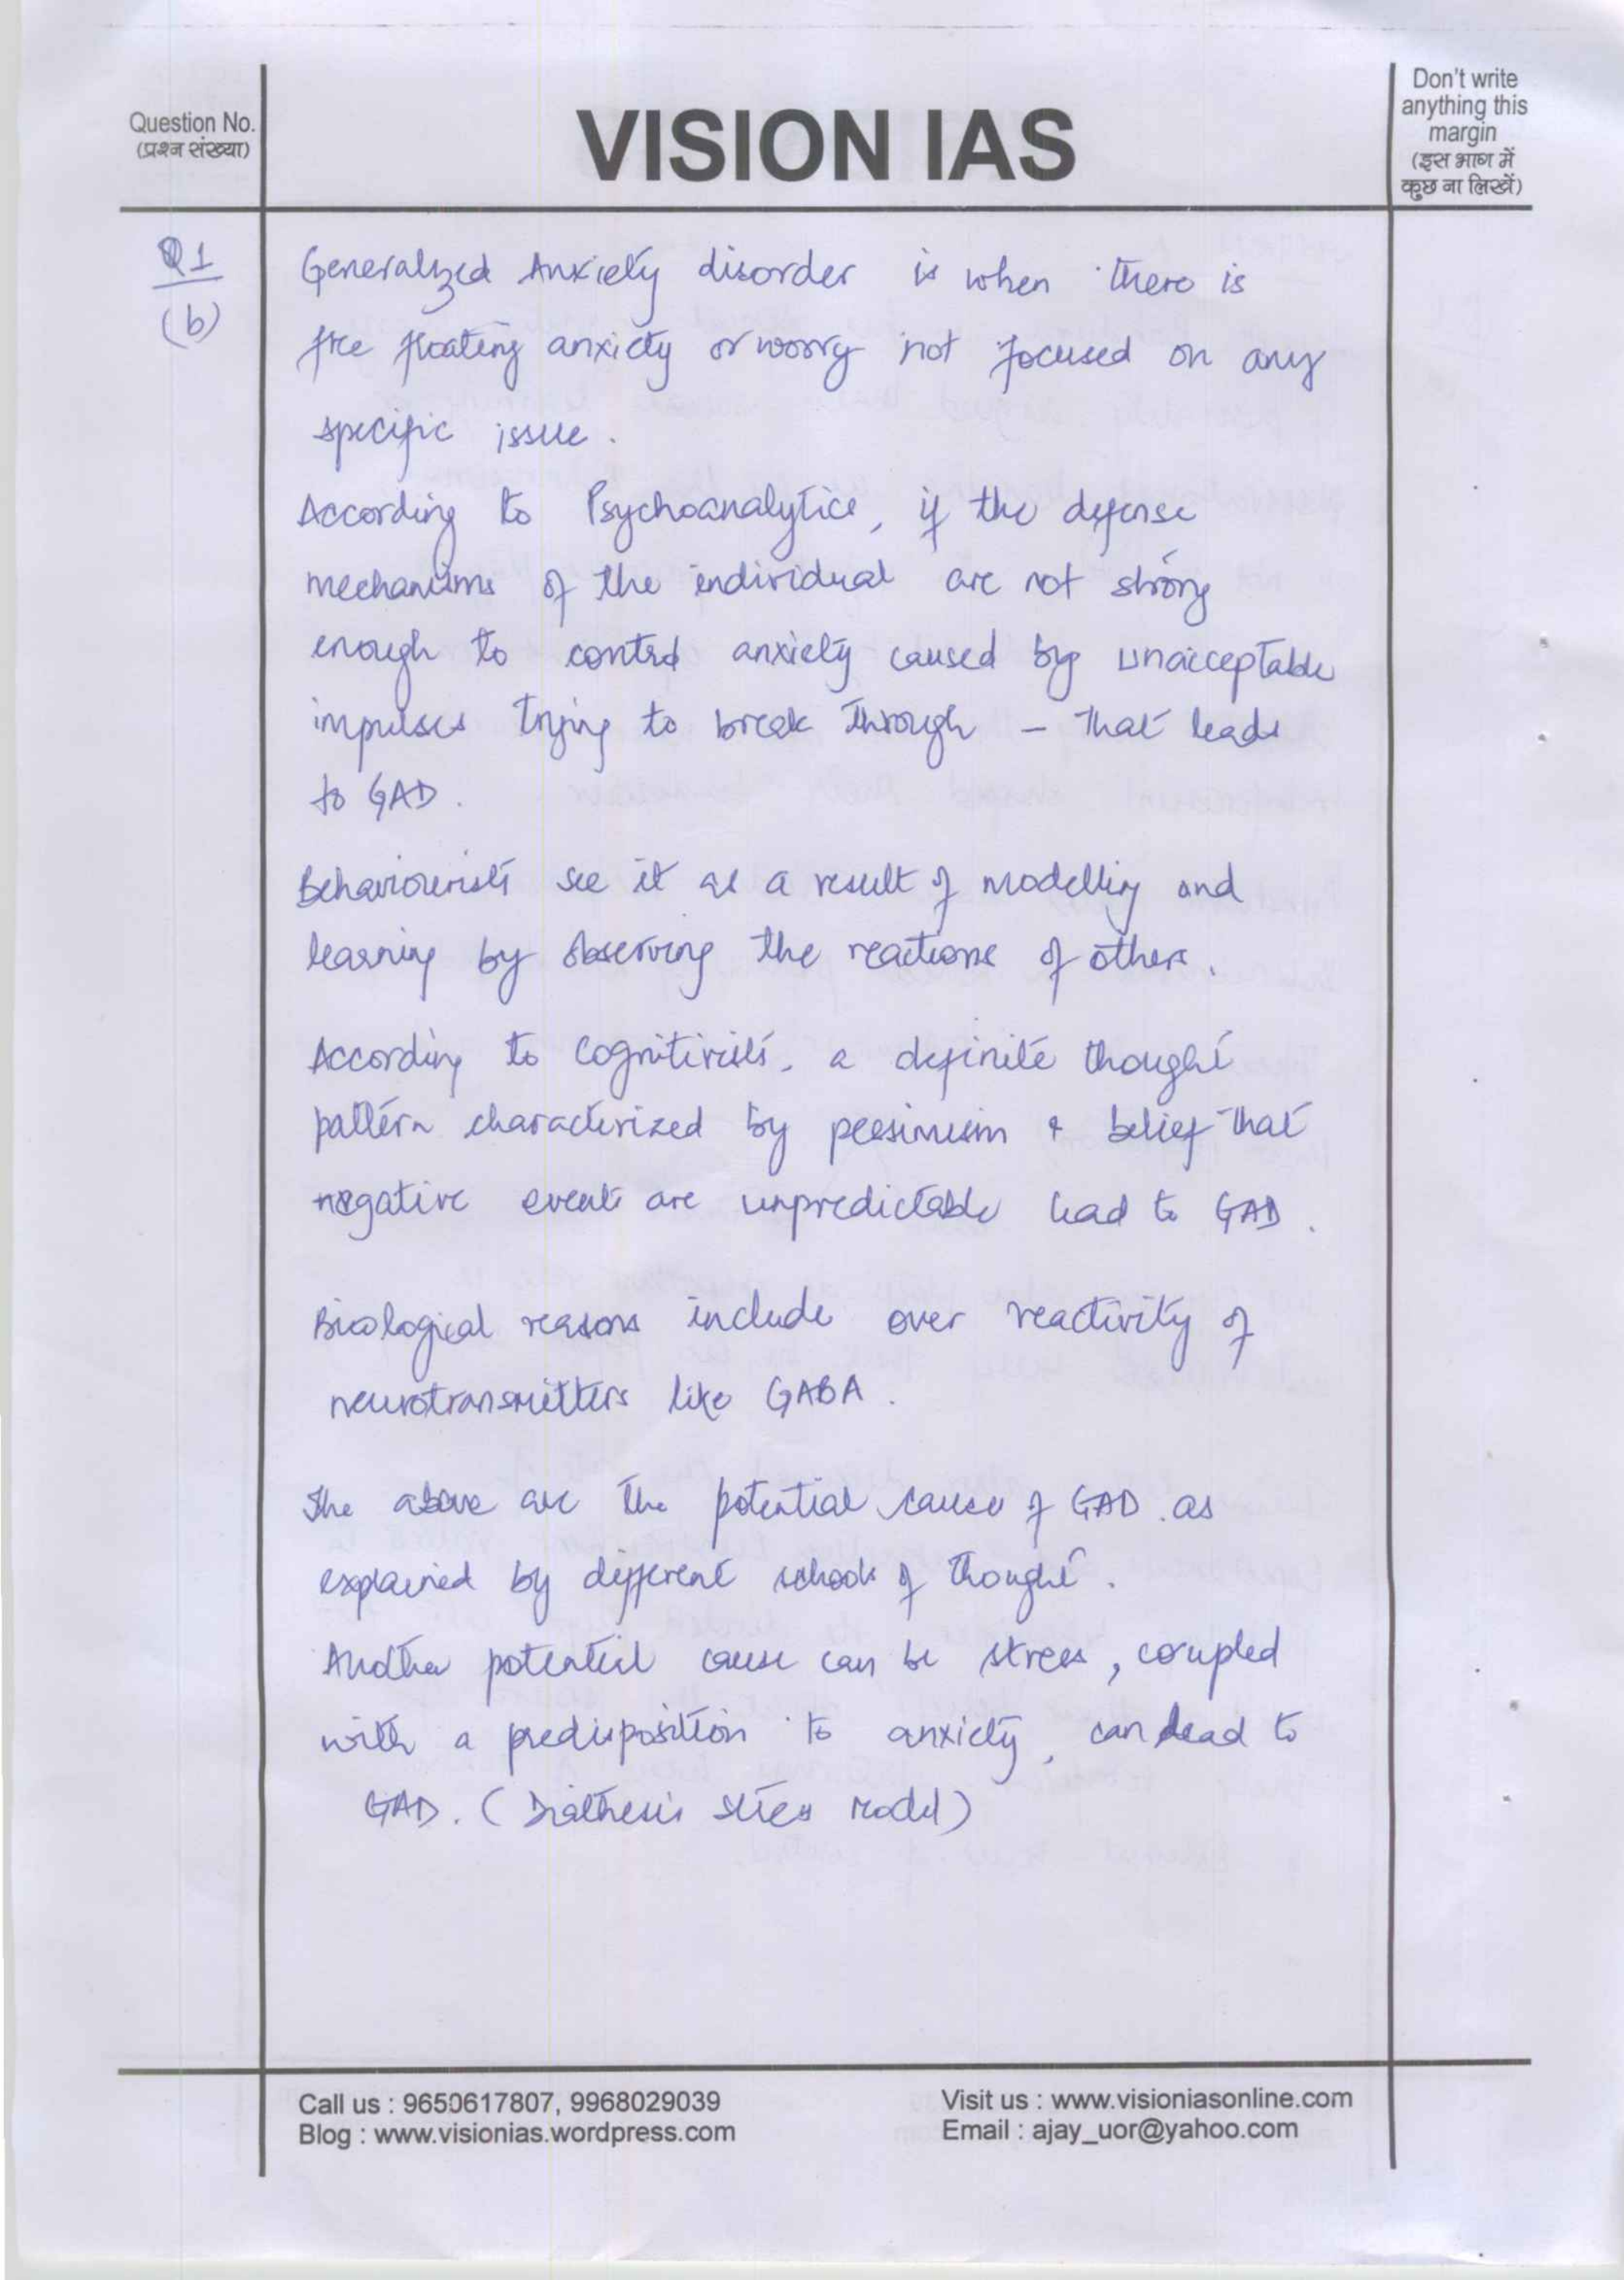 Question No.
(प्रश्न संख्या)
VISION IAS
Don't write
anything this
margin
(इस भाग में
कुछ ना लिखें)
Q1
(b)
Generalyzed Anxiety disorder is when there is
free floating anxiety or worry not focused on any
specific issue.
According to Psychoanalytics, if the defense
mechanisms of the individual are not strong
enough to control anxiety caused by unacceptable
impulses trying to break through - that leads
to GAD.
Behaviourists see it as a result of modelling and
learning by observing the reactions of others.
According to cognitivists, a definite thought
pattern characterized by pessimism & belief that
negative events are unpredictable lead to GAD.
Biological reasons include over reactivity of
neurotransmitters like GABA.
The above are the potential cause of GAD as
explained by different schools of thought.
Another potential cause can be stress, coupled
with a predisposition to anxiety, can lead to
GAD. (Diathesis stress Model)
Call us : 9650617807, 9968029039
Blog : www.visionias.wordpress.com
Visit us : www.visioniasonline.com
Email : ajay_uor@yahoo.com